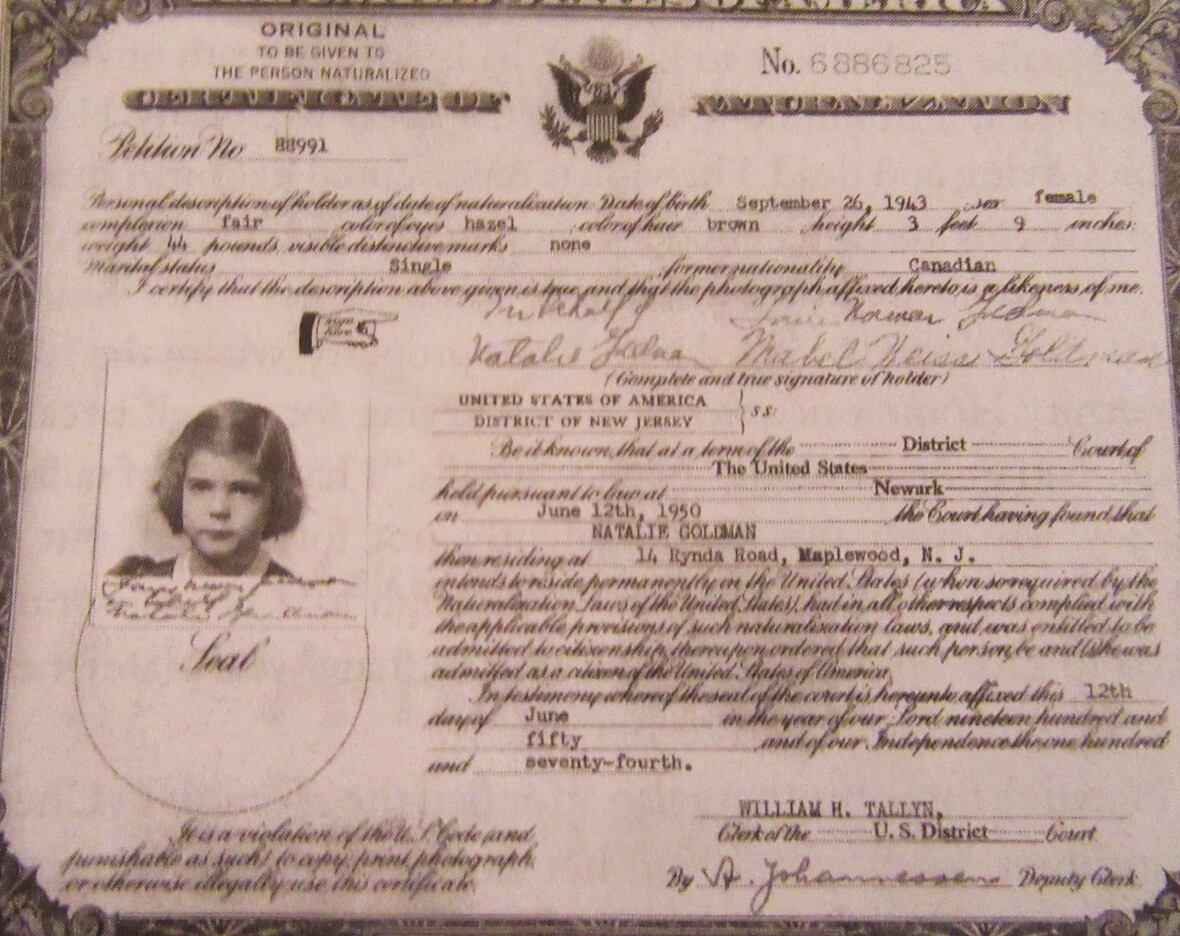 THE UNITED STATES OF AMERICA
ORIGINAL
TO BE GIVEN TO
THE PERSON NATURALIZED
No. 6886825
CERTIFICATE OF NATURALIZATION
Petition No 88991
Personal description of holder as of date of naturalization: Date of birth September 26, 1943 sex female
complexion fair color of eyes hazel color of hair brown height 3 feet 9 inches:
weight 44 pounds, visible distinctive marks none
marital status Single former nationality Canadian
I certify that the description above given is true, and that the photograph affixed hereto is a likeness of me.
In behalf of
Natalie Mabel Goldman
(Complete and true signature of holder)
UNITED STATES OF AMERICA
DISTRICT OF NEW JERSEY
ss:
Be it known, that at a term of the District Court of
The United States
held pursuant to law at Newark
on June 12th, 1950 the Court having found that
NATALIE GOLDMAN
then residing at 14 Rynda Road, Maplewood, N. J.
intends to reside permanently in the United States (when so required by the
Naturalization Laws of the United States), had in all other respects complied with
the applicable provisions of such naturalization laws, and was entitled to be
admitted to citizenship, thereupon ordered that such person be and (s)he was
admitted as a citizen of the United States of America.
In testimony whereof the seal of the court is hereunto affixed this 12th
day of June in the year of our Lord nineteen hundred and
fifty and of our Independence the one hundred
and seventy-fourth.
Seal
WILLIAM H. TALLYN,
Clerk of the U. S. District Court
By A. Johannessen Deputy Clerk
It is a violation of the U. S. Code (and
punishable as such) to copy, print, photograph,
or otherwise illegally use this certificate.